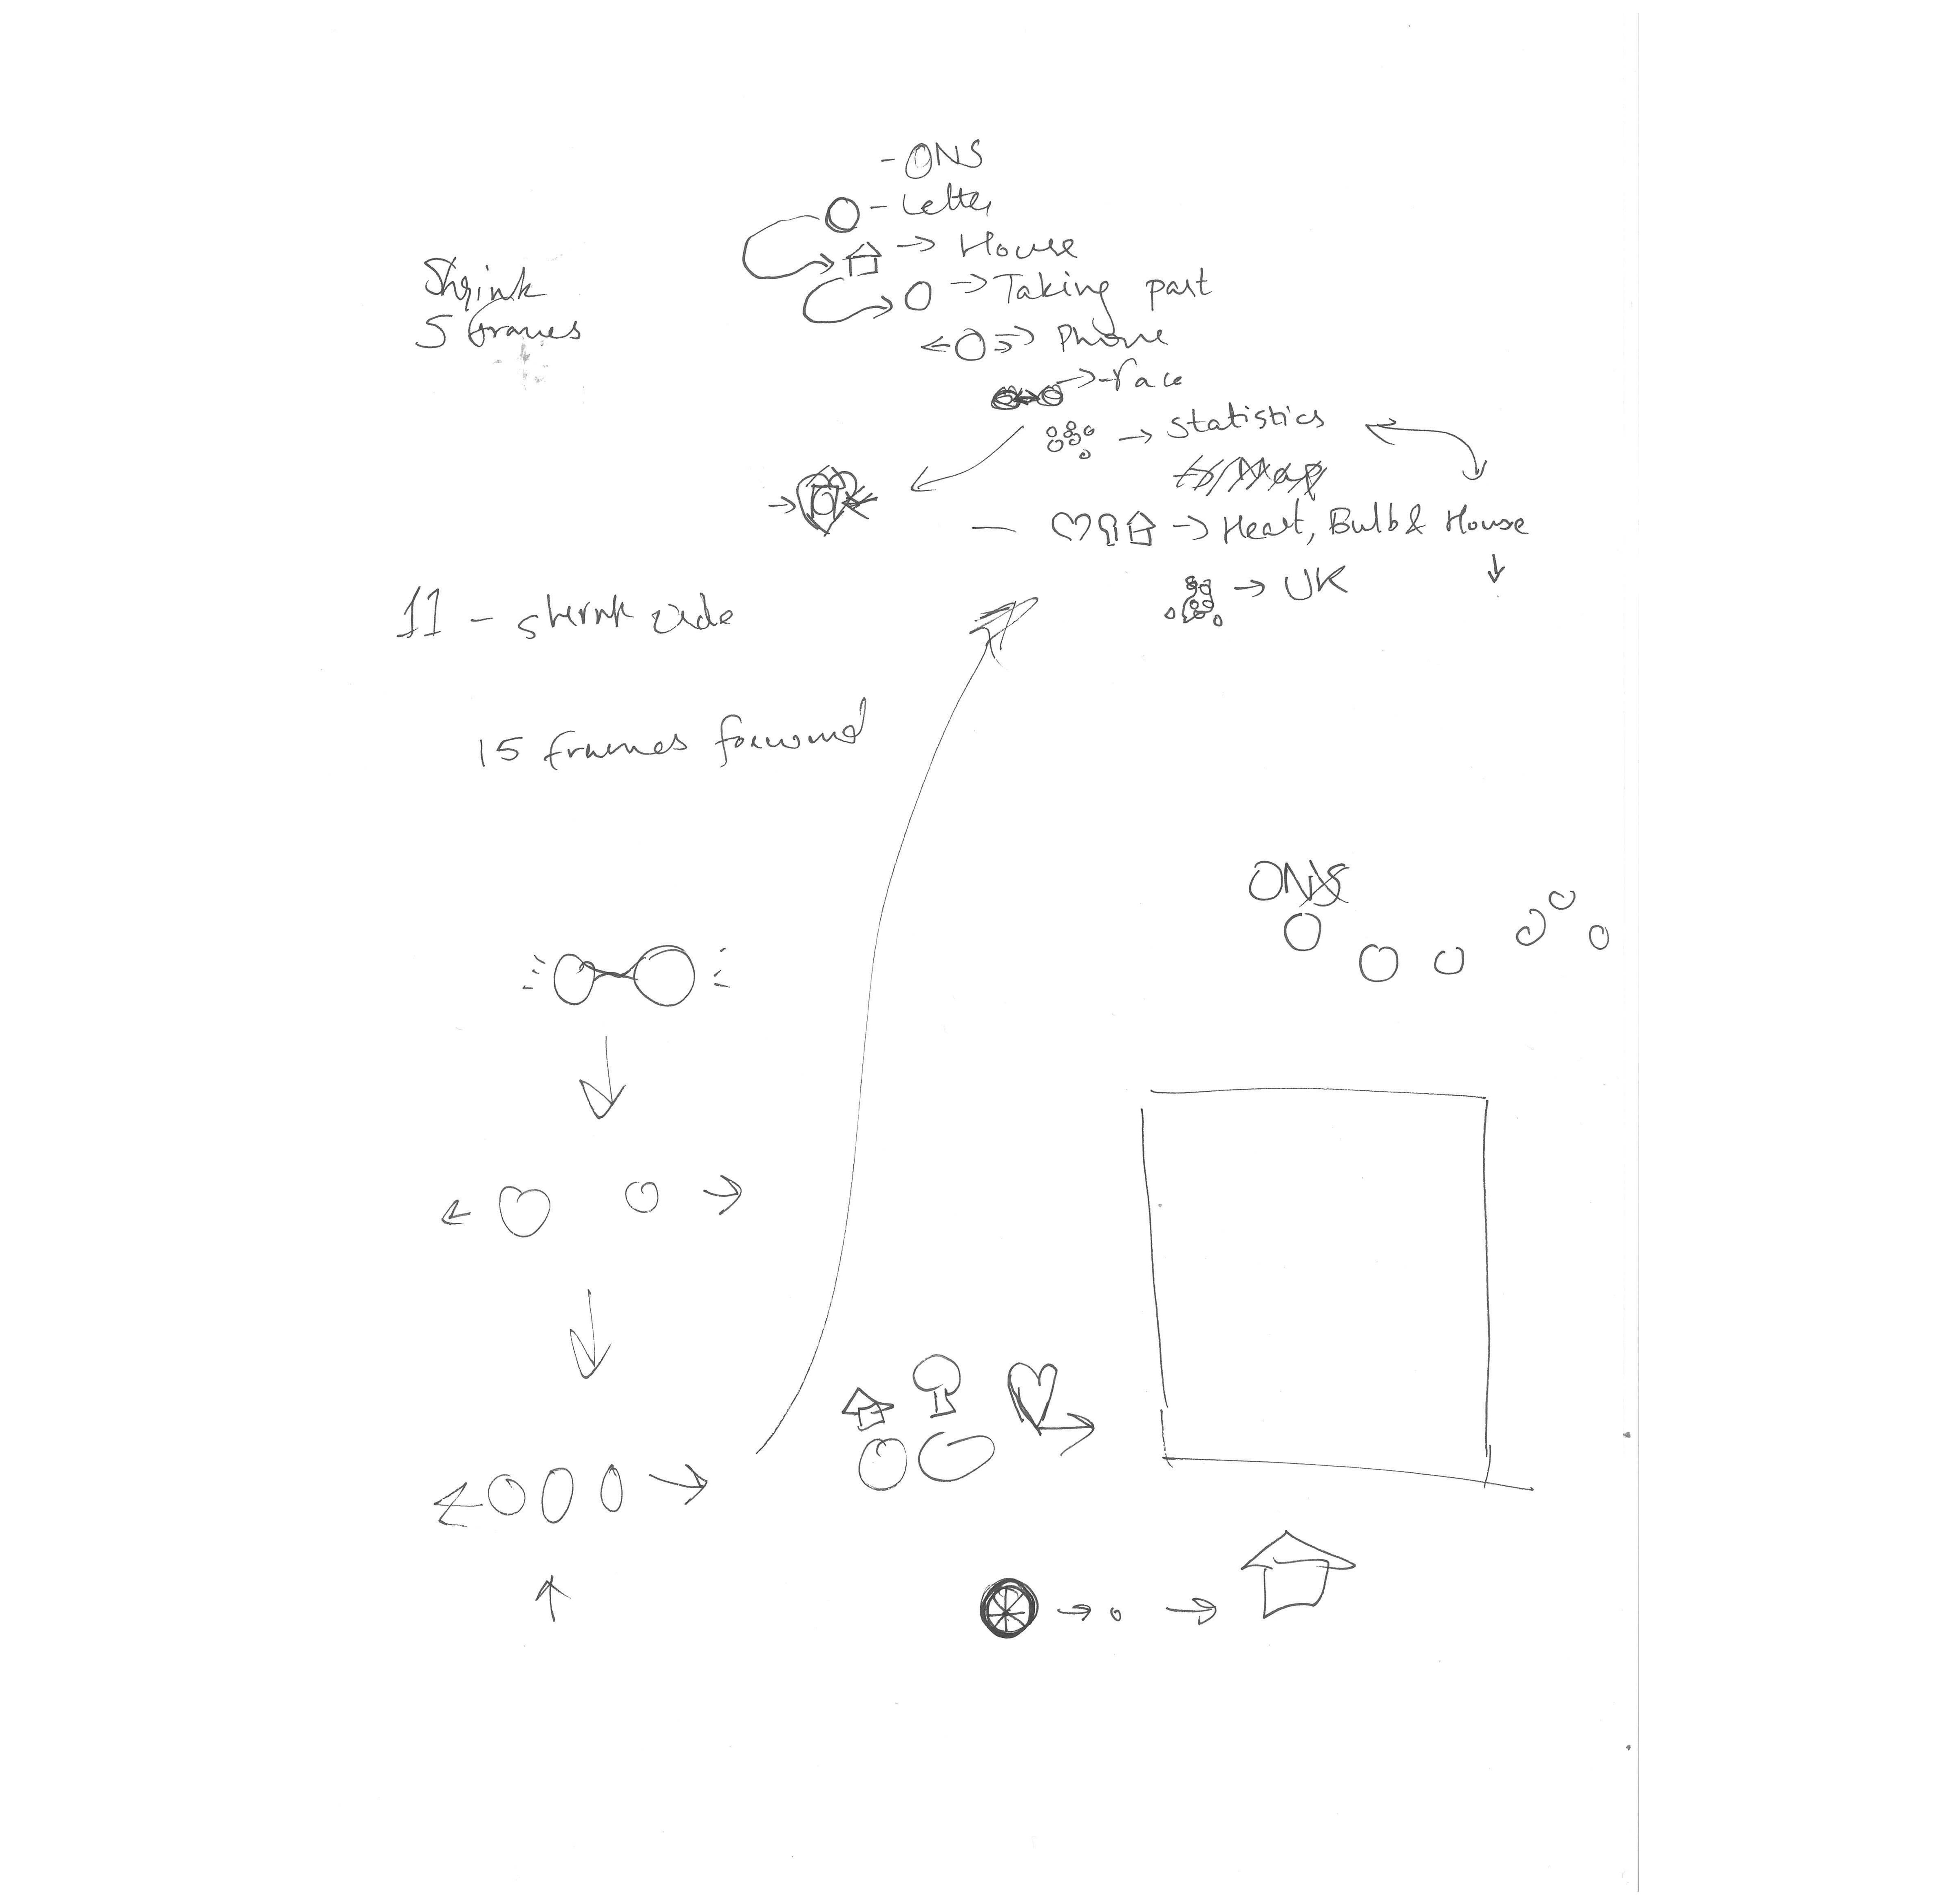 - ONS
- Letter
→ House
→ Taking part
Phone
→ Face
→ Statistics
→ Heart, Bulb & House
→ UK
Shrink
5 frames
11 - shrink
15 frames forward
ONS